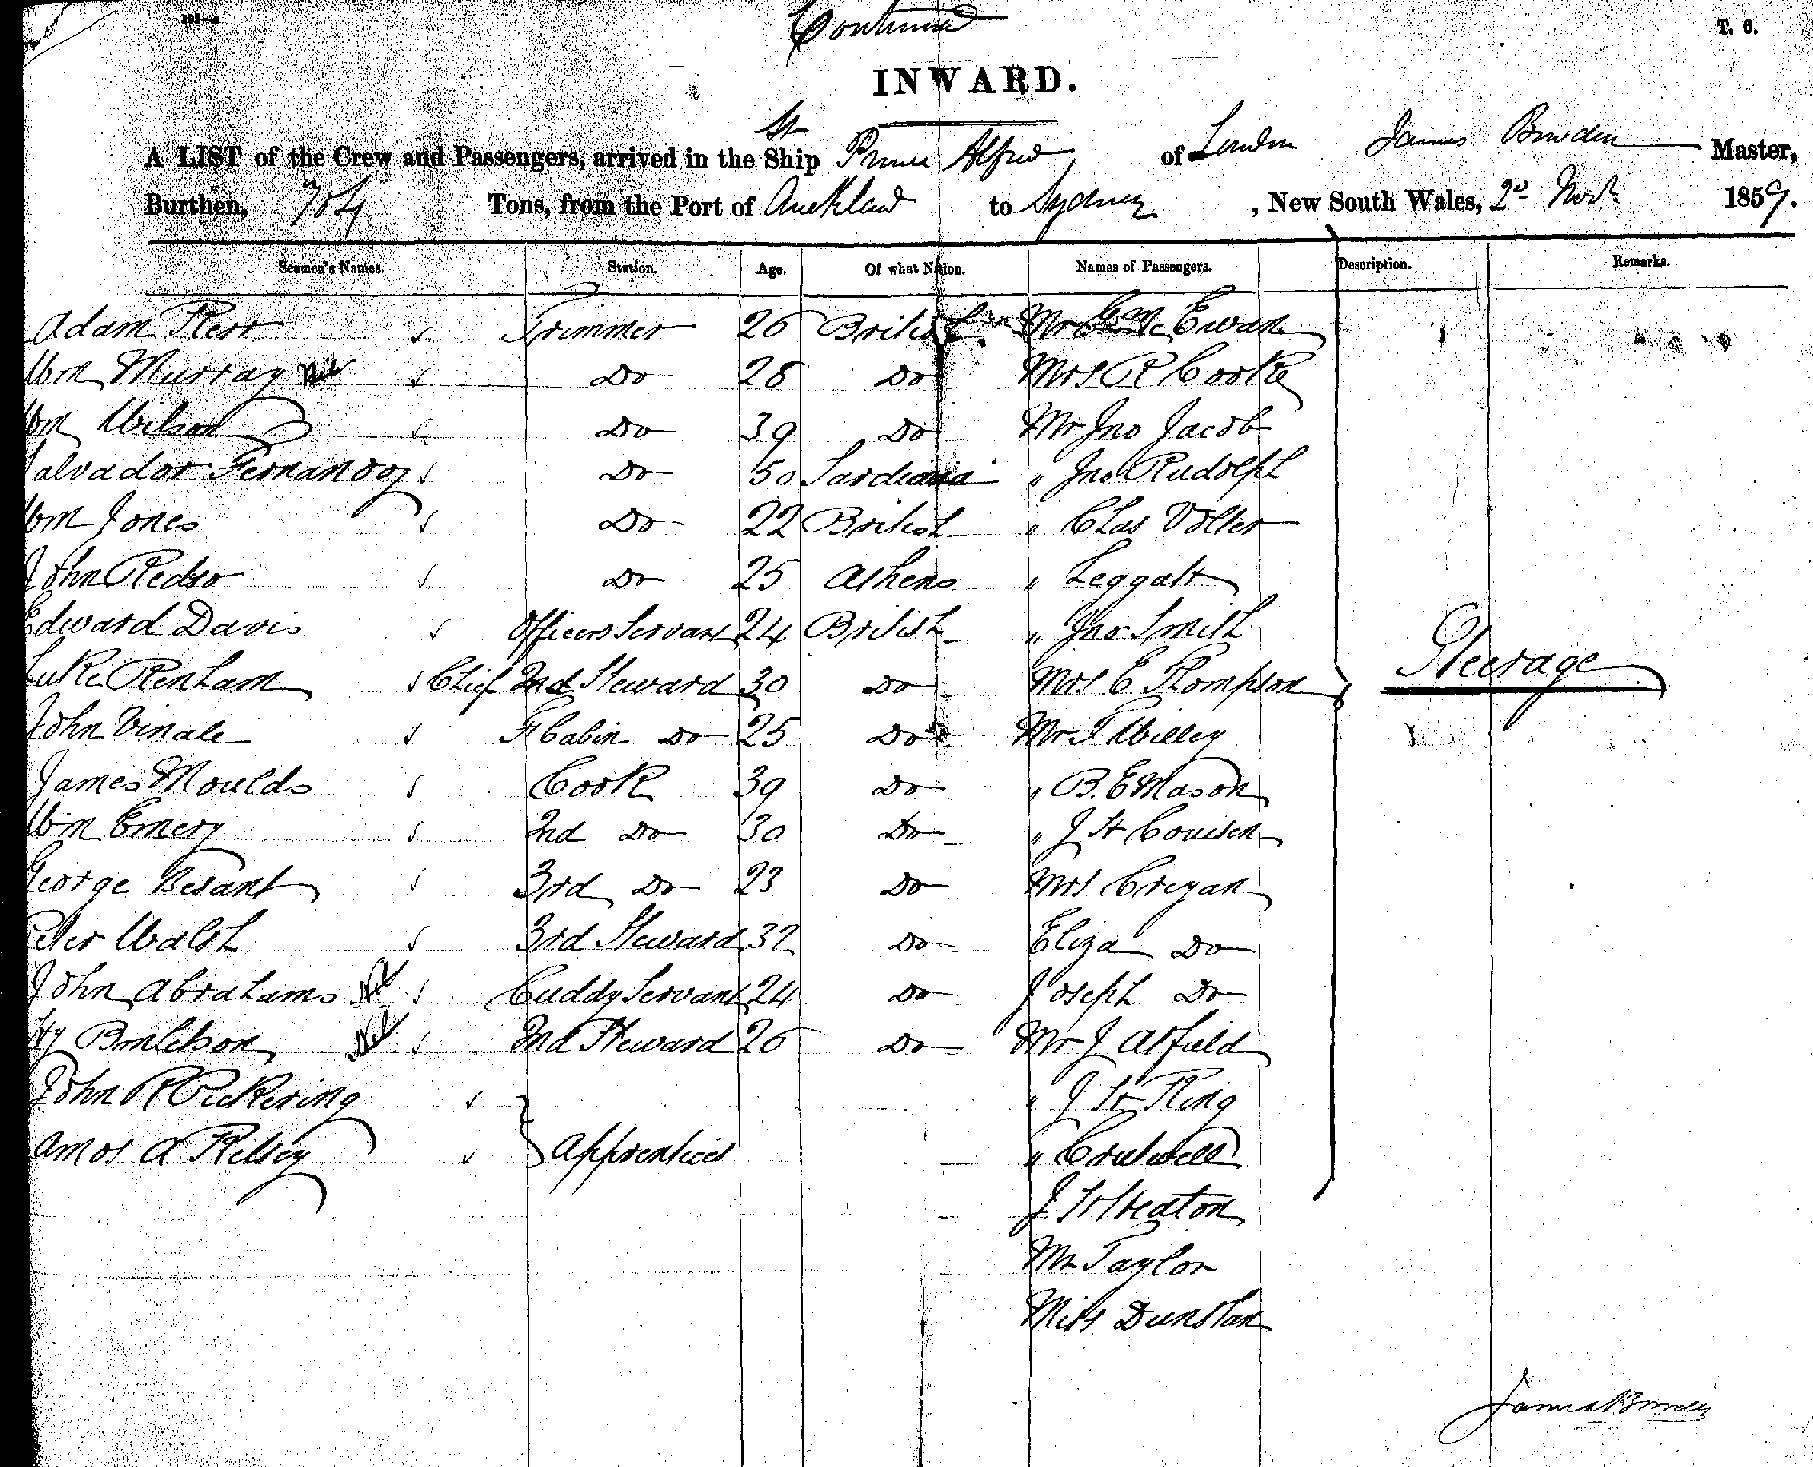 Continued
T. C.
INWARD.
St
A LIST of the Crew and Passengers, arrived in the Ship Prince Alfred of London James Bowden Master,
Burthen, 704 Tons, from the Port of Auckland to Sydney, New South Wales, 2d Novr 1859.
Seamen's Names. Station. Age. Of what Nation. Names of Passengers. Description. Remarks.
Adam Kerr Trimmer 26 British Mr McEwan
Wm Murray Do 28 Do Mrs R Cooke
Wm Wilson Do 39 Do Mr Jno Jacob
Salvador Fernandoz Do 50 Sardinia " Jno Rudolph
Wm Jones Do 22 British " Chas Volter
John Pedro Do 25 Athens " Leggatt
Edward Davis Officers Servant 24 British " Jno Smith
Luke Renham Chief 2nd Steward 30 Do Mrs E Thompson Steerage
John Vinale F Cabin Do 25 Do Mr T Willey
James Moulds Cook 39 Do " B. E Mason
Wm Emery 2nd Do 30 Do " J H
George Besant 3rd Do 23 Do Mrs Cregan
Peter Walsh 3rd Steward 32 Do Eliza Do
John Abrahams Cuddy Servant 24 Do Joseph Do
Hy 2nd Steward 26 Do Mr J Atfield
John R Pickering " J King
Amos A Kelsey Apprentices " Crutwell
J Wheaton
Mr Taylor
Miss Dunstan
James Bowden